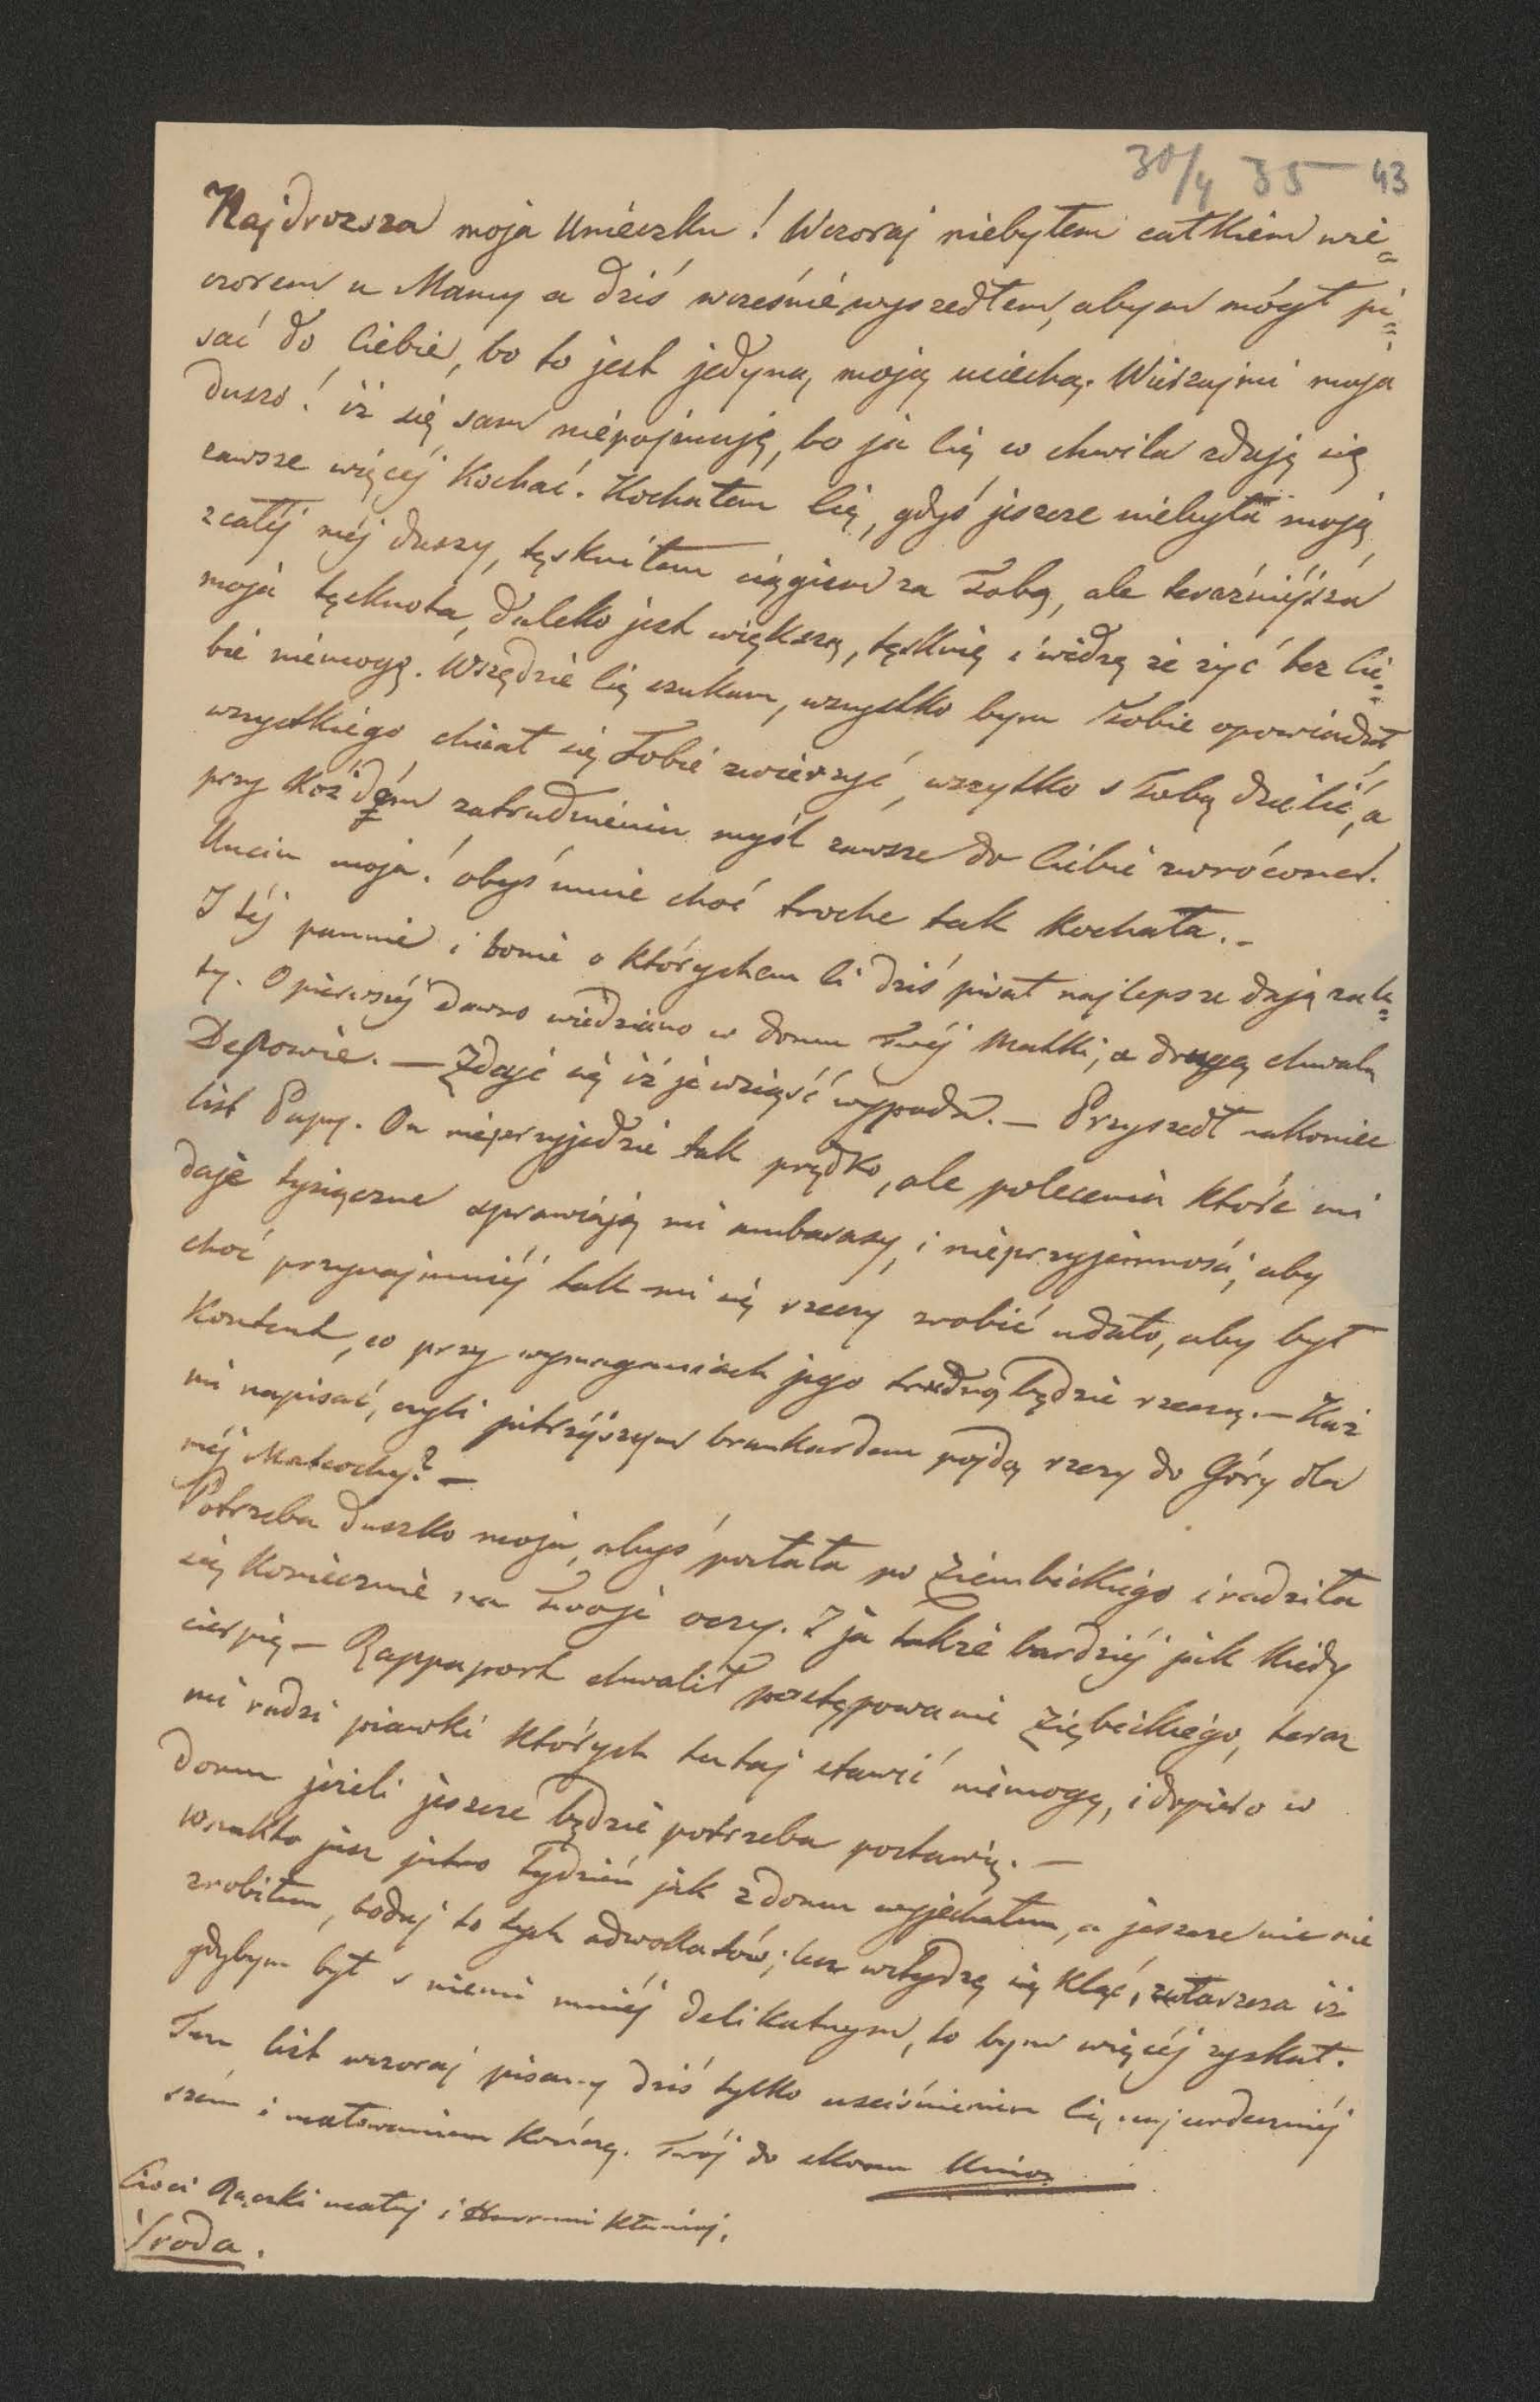 30/4 35 43
Najdrozsza moja Unieczku! Wczoraj niebyłem całkiem wie=
czorem u Mamy a dziś wcześnie wyszedłem, abym mógł pi=
sać do Ciebie, bo to jest jedyną moją uciechą. Wierzaj mi moja
duszo! iż się sam niepojmuję, bo ja Cię co chwila zdaję się
zawsze więcéj Kochać. Kochałem Cię, gdyś jeszcze niebyła moją
z całéj méj duszy, tęskniłem ciągiem za Tobą, ale teraźniéjsza
moja tęsknota, daleko jest większą, tęsknię i widzę że żyć bez Cie=
bie niemogę. Wszędzie Cię szukam, wszystko bym Tobie opowiadał,
wszystkiego chciał się Tobie zwierzyć, wszytko s Tobą dzielić, a
przy Każdém zatrudnieniu myśl zawsze do Ciebie zwrócona.
Unciu moja! obyś mnie choć troche tak kochała.-
I téj pannie i bonie o którychem Ci dziś pisał najlepsze dają zale=
ty. O pierwszéj dawno wiedziano w domu Twéj Matki, a drugą chwalą
. — Zdaje się iż ją wziąść wypada. — Przyszedł nakoniec
list Papy. On nieprzyjedzie tak prędko, ale polecenia które mi
daje tysiączne sprawiają mi ambarasy, i nieprzyjemności, aby
choć przynajmniéj tak mi się rzeczy zrobić udało, aby był
Kontent, co przy wymaganiach jego trudną będzie rzeczą. — Każ
mi napisać, czyli jutrzéjszym brankardem pójdą rzeczy do Góry dla
méj Macochy? —
Potrzeba duszko moja, abyś posłała po Ziembickiego i radziła
się Koniecznie na Twoje oczy. I ja także bardziéj jak kiedy
cierpię — Rappaport chwalił postępowanie Ziębickiego, teraz
mi radzi piawki których tutaj stawić niemogę, i dopiero w
domu jeżeli jeszcze będzie potrzeba postawię. —
Wszakto już jutro Tydzień jak z domu wyjechałem, a jeszcze nic nie
zrobiłem, bodaj to tych adwokatów; lecz wstydzę się kląć, zwłaszcza iż
gdybym był s niemi mniéj delikatnym, to bym więcéj zyskał.
Ten list wczoraj pisany dziś tylko usciśnieniem Cię najserdeczniéj
szém i ucałowaniem Kończę. Twój do skonu
Cioci Rączki ucałuj i kłaniaj.
Środa.